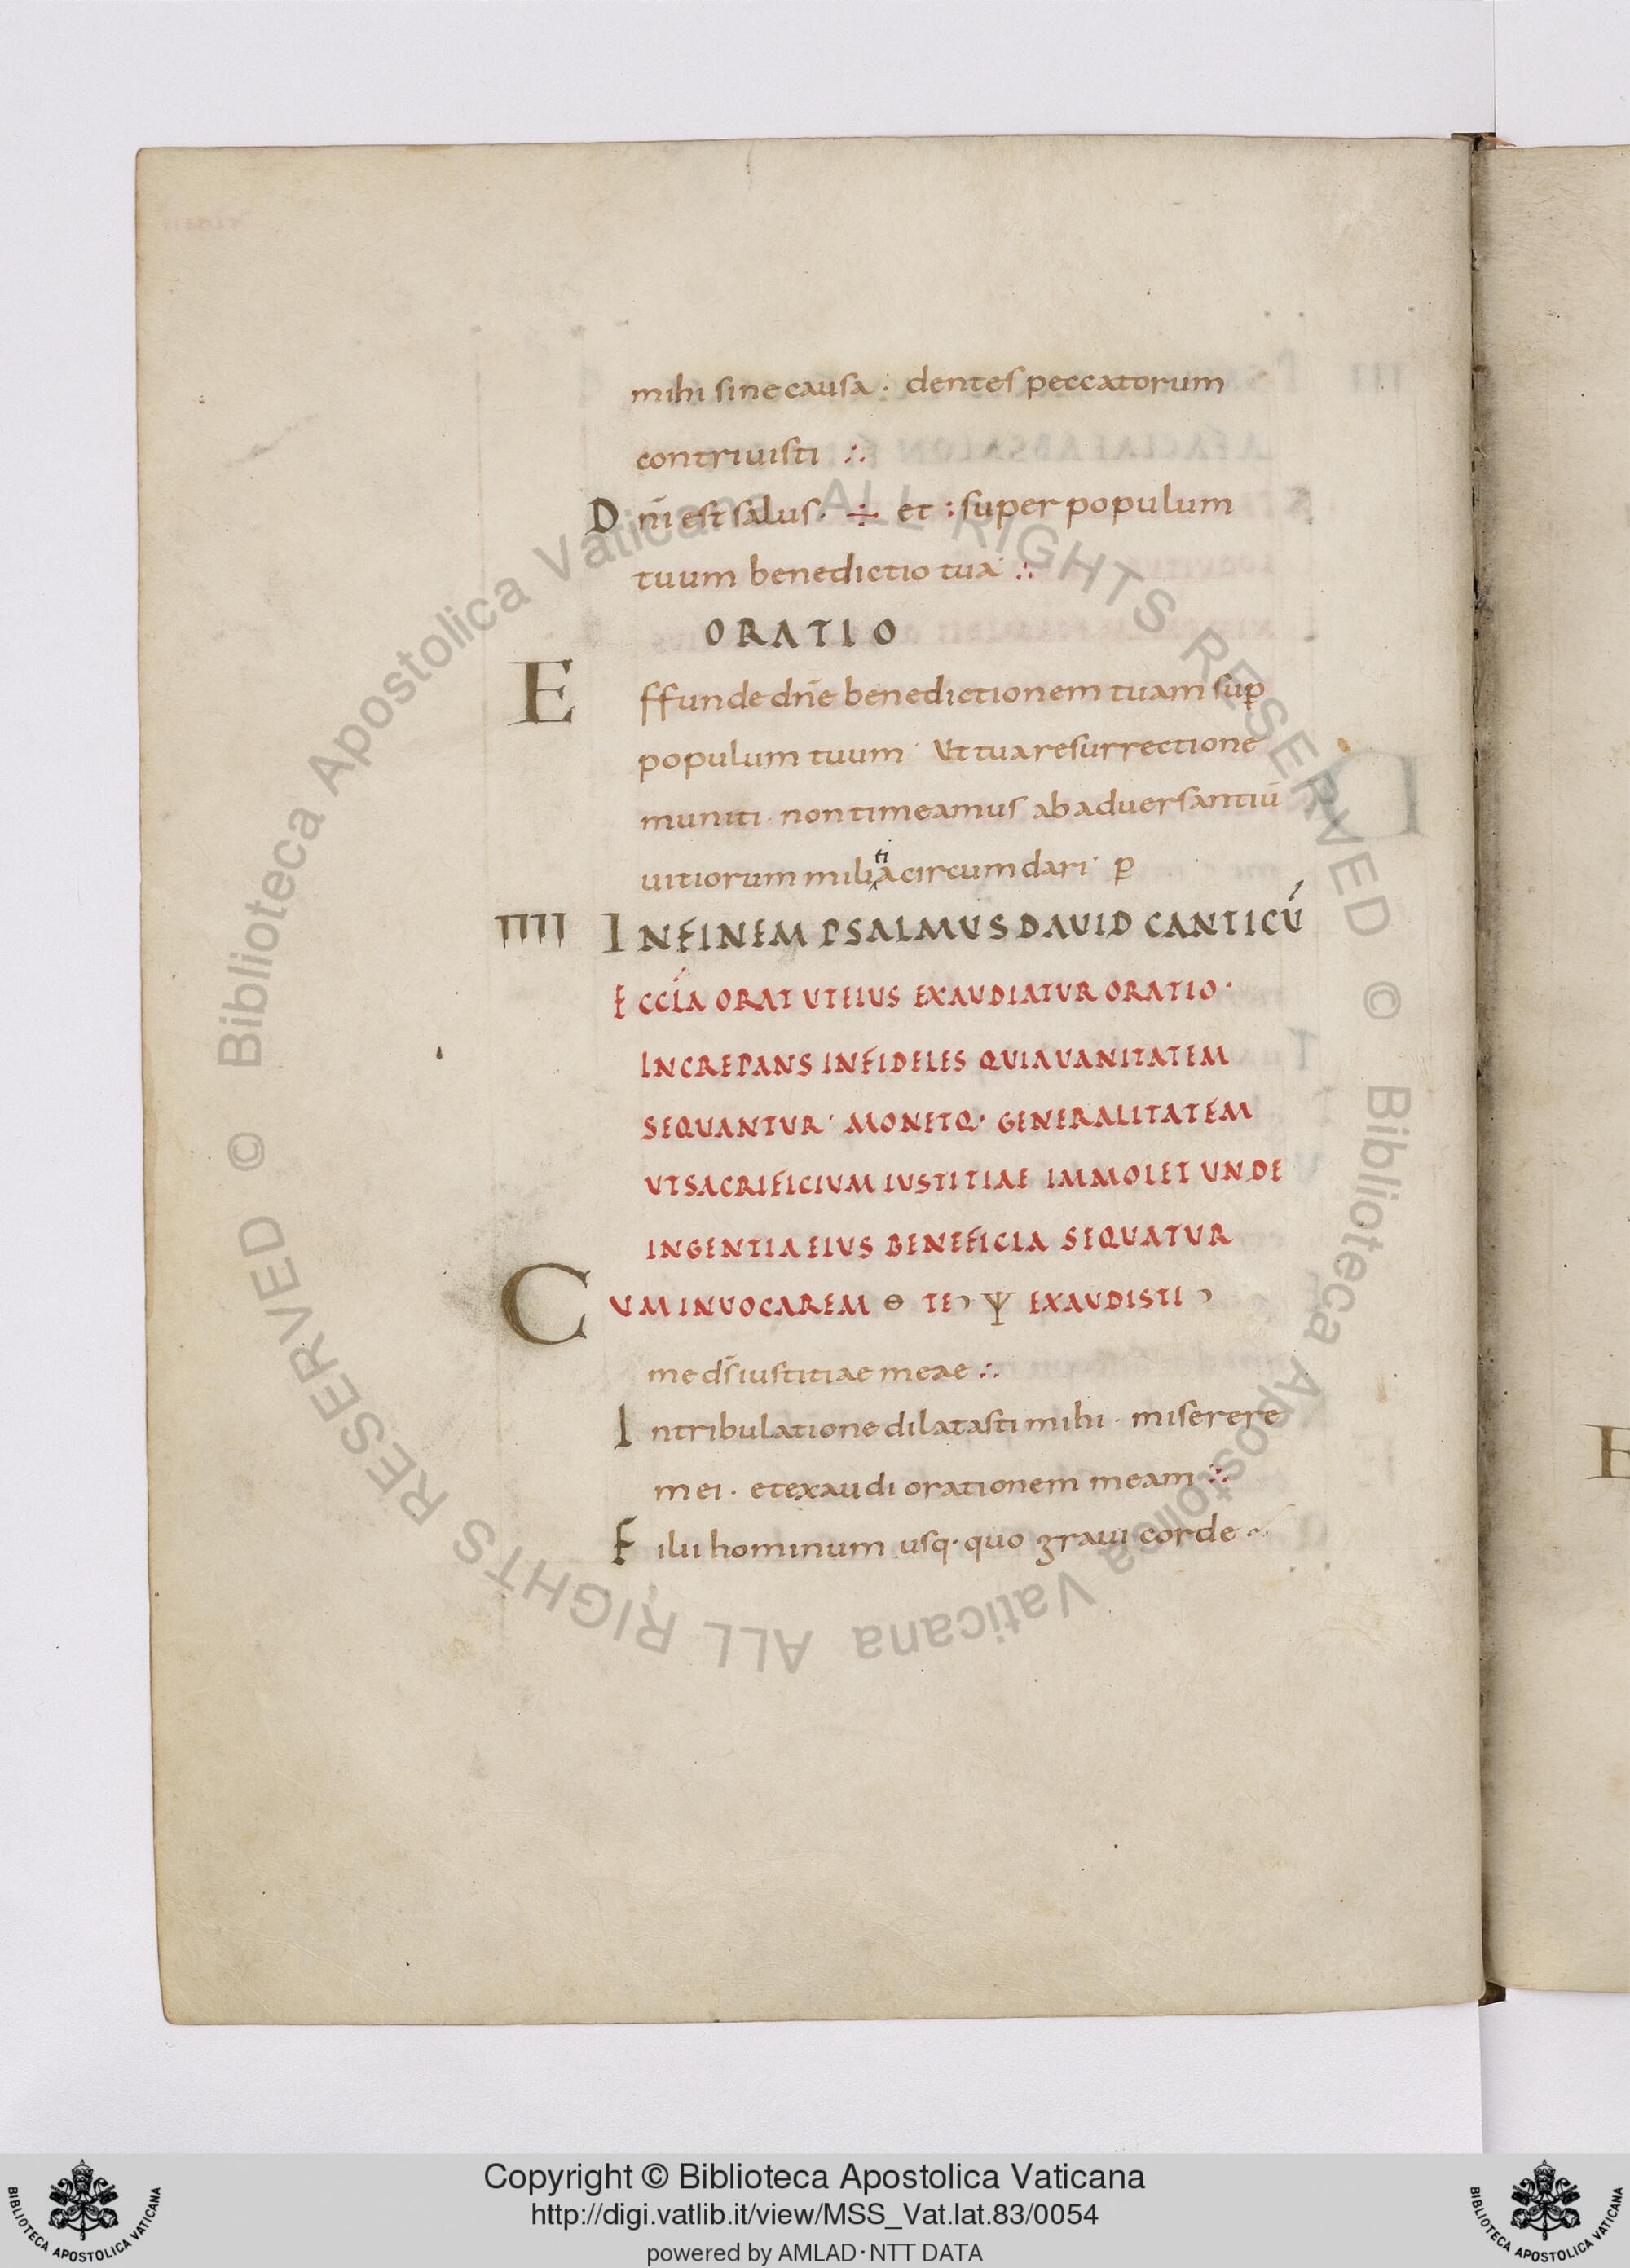 mihi sine causa · dentes peccatorum
contriuisti ∴
D nī est salus · ÷ et : super populum
tuum benedictio tua ∴
ORATIO
E ffunde dn̄e benedictionem tuam suꝑ
populum tuum · Ut tua resurrectione
muniti · non timeamus ab aduersantiū
ti
uitiorum milia circumdari · ꝑ
IIII IN FINEM PSALMUS DAUID CANTICŪ
ECCLĀ ORAT UT EIUS EXAUDIATUR ORATIO ·
INCREPANS INFIDELES QUIA UANITATEM
SEQUANTUR · MONETQ· GENERALITATEM
UT SACRIFICIUM IUSTITIAE IMMOLET UNDE
INGENTIA EIUS BENEFICIA SEQUATUR
CUM INUOCAREM Θ TE Ψ EXAUDISTI
me ds̄ iustitiae meae ∴
I n tribulatione dilatasti mihi · miserere
mei · et exaudi orationem meam ∴
F ilii hominum usq· quo graui corde
Biblioteca Apostolica Vaticana ALL RIGHTS RESERVED ©
Biblioteca Apostolica Vaticana ALL RIGHTS RESERVED ©
E
Copyright © Biblioteca Apostolica Vaticana
http://digi.vatlib.it/view/MSS_Vat.lat.83/0054
powered by AMLAD·NTT DATA
BIBLIOTECA APOSTOLICA VATICANA
BIBLIOTECA APOSTOLICA VATICANA